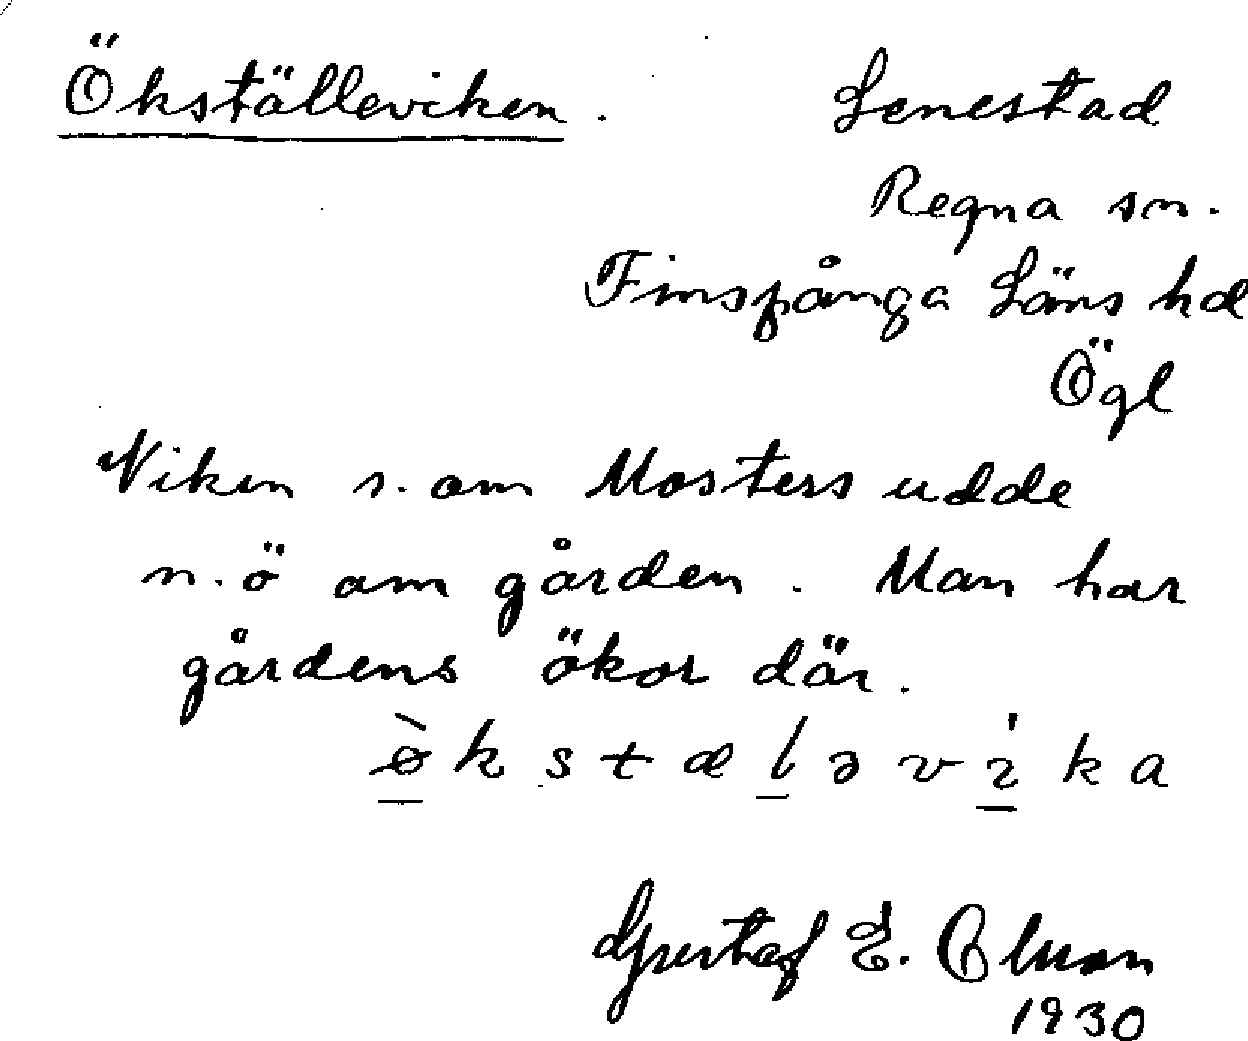 Ökställeviken. Lenestad
Regna sn.
Finspånga Läns hd
Ögl
Viken s. om Mosters udde
n.ö om gården. Man har
gårdens ökor där.
ø̀kstæləvi̍ka
Gustaf E. Olsson
1930